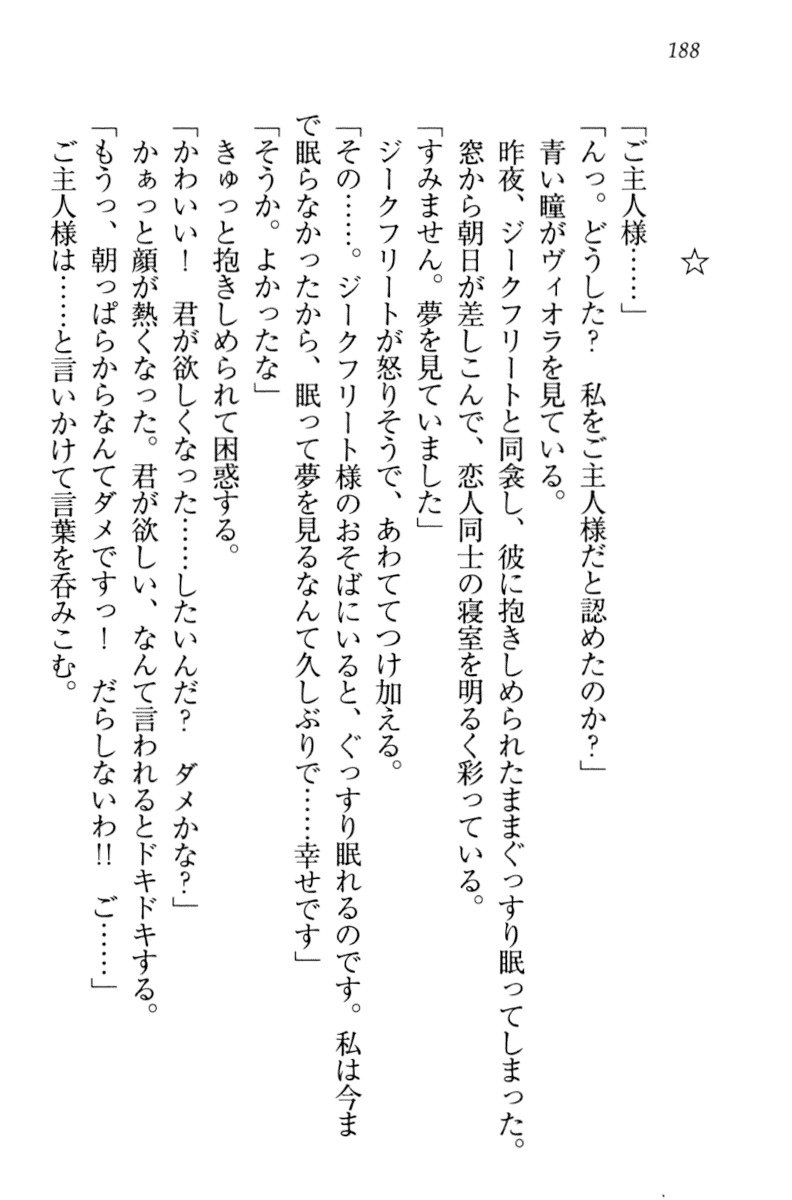 188
☆
「ご主人様……」
「んっ。どうした？　私をご主人様だと認めたのか？」
青い瞳がヴィオラを見ている。
昨夜、ジークフリートと同衾し、彼に抱きしめられたままぐっすり眠ってしまった。
窓から朝日が差しこんで、恋人同士の寝室を明るく彩っている。
「すみません。夢を見ていました」
ジークフリートが怒りそうで、あわててつけ加える。
「その……。ジークフリート様のおそばにいると、ぐっすり眠れるのです。私は今ま
で眠らなかったから、眠って夢を見るなんて久しぶりで……幸せです」
「そうか。よかったな」
きゅっと抱きしめられて困惑する。
「かわいい！　君が欲しくなった……したいんだ？　ダメかな？」
かぁっと顔が熱くなった。君が欲しい、なんて言われるとドキドキする。
「もうっ、朝っぱらからなんてダメですっ！　だらしないわ!!　ご……」
ご主人様は……と言いかけて言葉を呑みこむ。